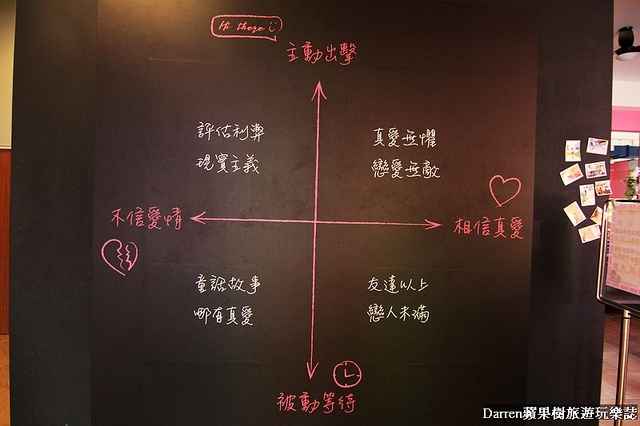 Hi there
主動出擊
評估利弊
現實主義
真愛無懼
戀愛無敵
不信愛情
相信真愛
童話故事
哪有真愛
友達以上
戀人未滿
被動等待
Darren蘋果樹旅遊玩樂誌